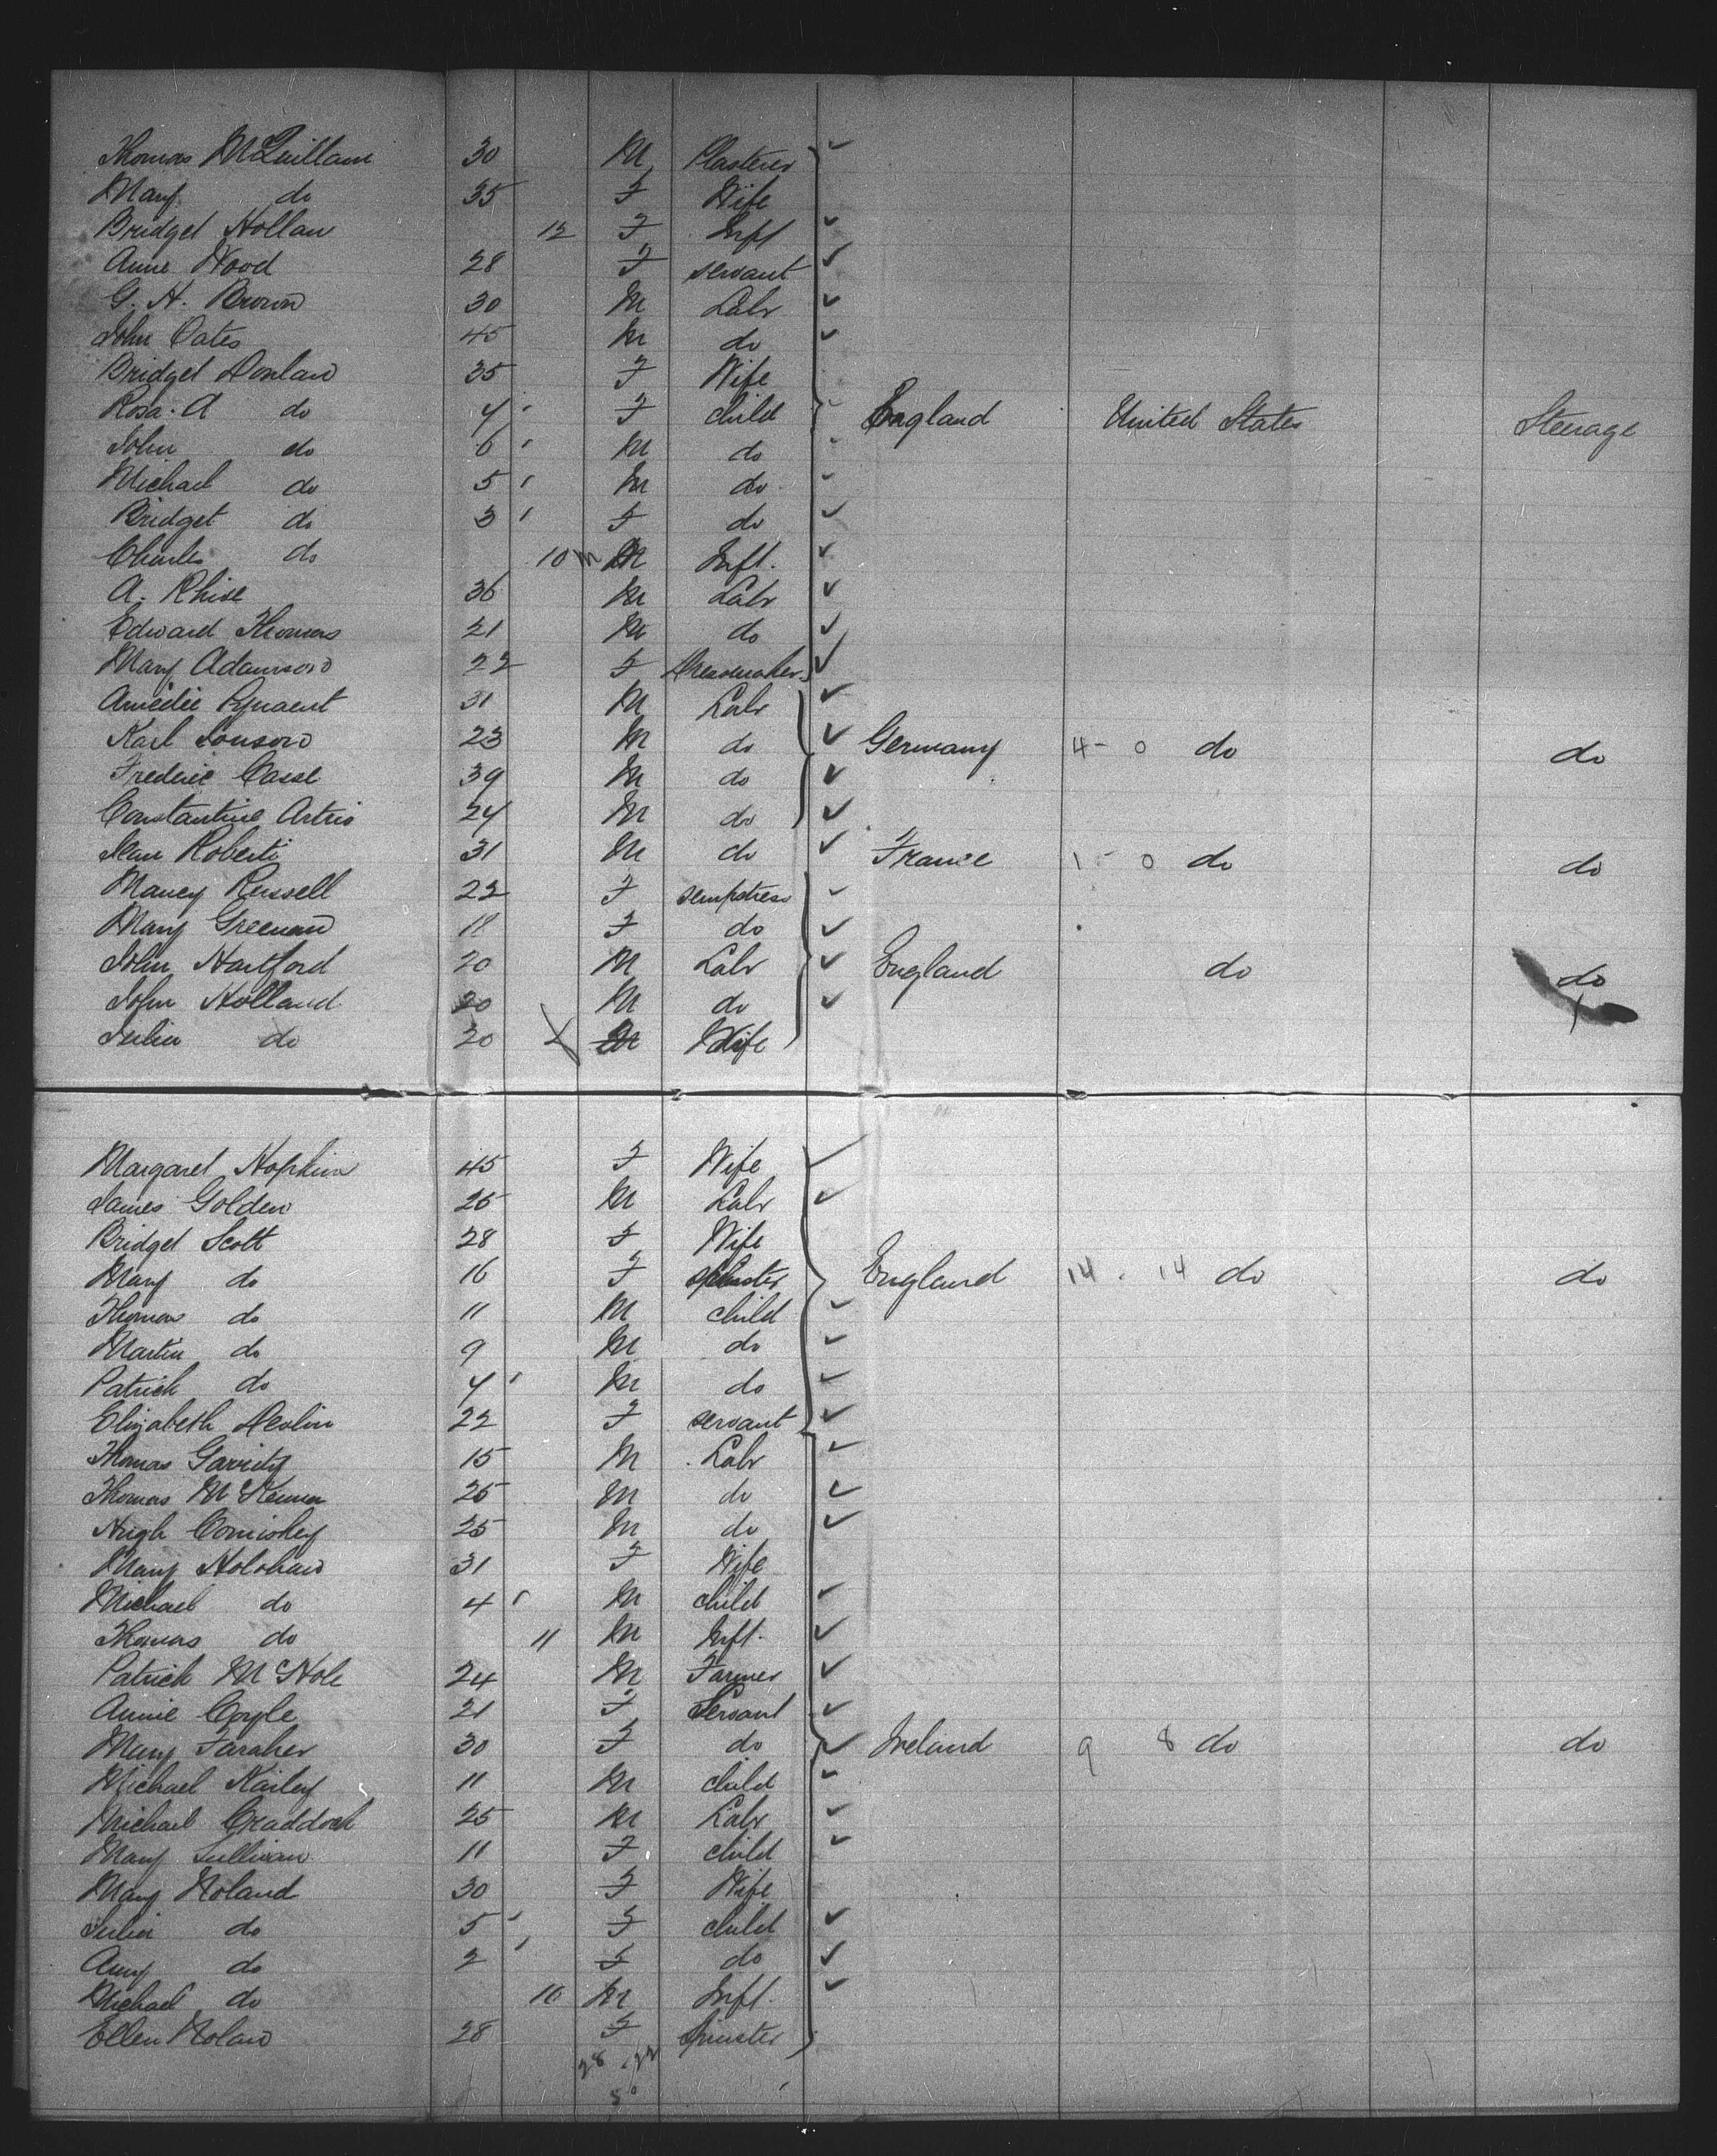 Thomas McQuillam 30 M Plasterer
Mary do 35 F Wife
Bridget Hollan 12 F Inft
Anne Wood 28 F servant
G. H. Brown 30 M Labr
John Oates 45 M do
Bridget Donlan 35 F Wife
Rosa. A do 4 F child England United States Steerage
John do 6 M do
Michael do 5 M do
Bridget do 3 F do
Charles do 10 m M Inft.
A. Rhise 36 M Labr
Edward Thomas 21 M do
Mary Adamson 22 F Dressmaker
Amédée 31 M Labr
Karl Jonson 23 M do Germany 4 - 0 do do
Frederic Casse 39 M do
Constantine Artris 24 M do
Jean Roberti 31 M do France 1 - 0 do do
Nancy Russell 22 F sempstress
Mary Greenan 18 F do
John Hartford 20 M Labr England do do
John Holland 20 M do
Julia do 20 X M Wife
Margaret Hopkins 45 F Wife
James Golden 25 M Labr
Bridget Scott 28 F Wife
Mary do 16 F spinster England 14 . 14 do do
Thomas do 11 M child
Martin do 9 M do
Patrick do 4 M do
Elizabeth Devlin 22 F servant
Thomas Garrity 15 M Labr
Thomas McKenna 25 M do
Hugh Comiskey 25 M do
Mary Holohan 31 F Wife
Michael do 4 M child
Thomas do 11 M Inft.
Patrick McHole 24 M Farmer
Annie Coyle 21 F Servant
Mary Faraher 30 F do Ireland 9 8 do do
Michael Nailey 11 M child
Michael Craddock 25 M Labr
Mary Sullivan 11 F child
Mary Noland 30 F Wife
Julia do 5 F child
Amy do 2 F do
Michael do 10 M Inft.
Ellen Nolan 28 F Spinster
28 . 22
50